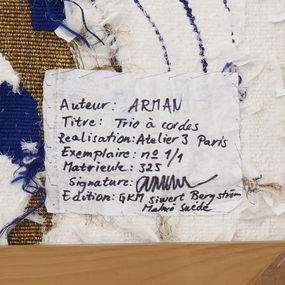 Auteur: ARMAN
Titre: Trio à cordes
Realisation: Atelier 3 Paris
Exemplaire: nº 1/1
Matrieule: 325
Signature:
Edition: GKM Siwert Bergström
Malmö Suède